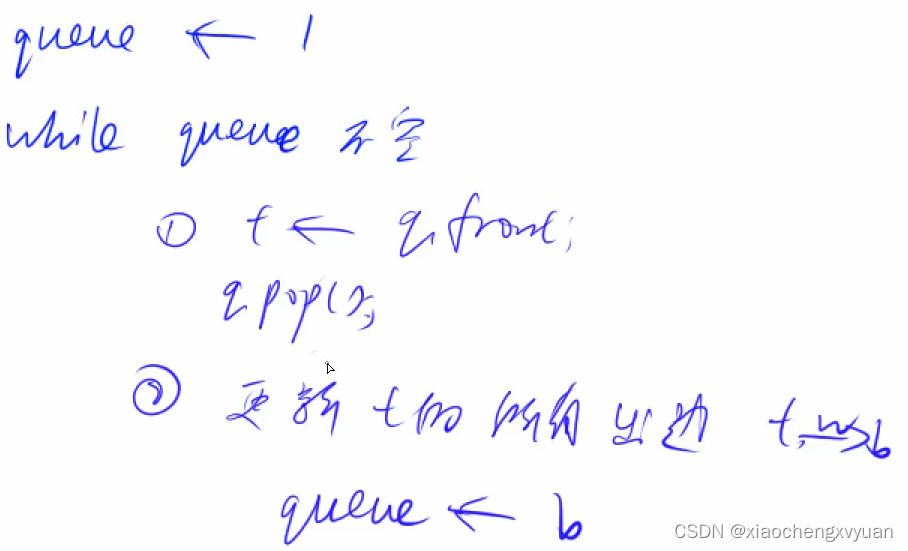 queue ← 1
while queue 不空
① t ← q.front;
q.pop();
② 更新 t 的 所有 出边 t -w-> b
queue ← b
CSDN @xiaochengxvyuan